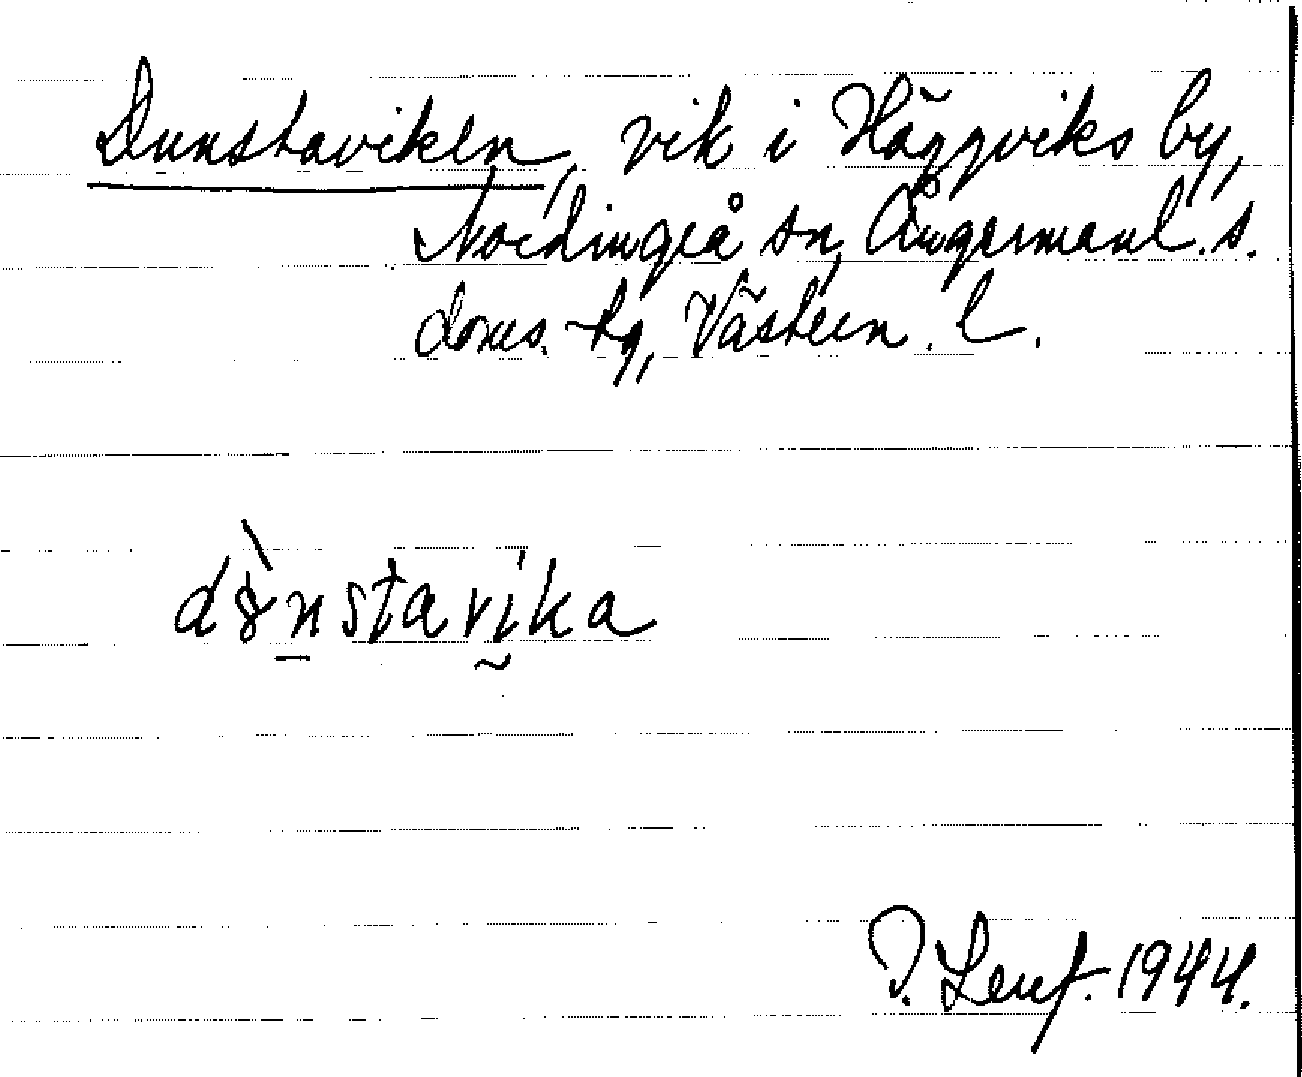 Dunstaviken, vik i Häggviks by,
Nordingrå sn, Ångermanl. s.
doms. tg, Västern. l.
dunstavika
1944.